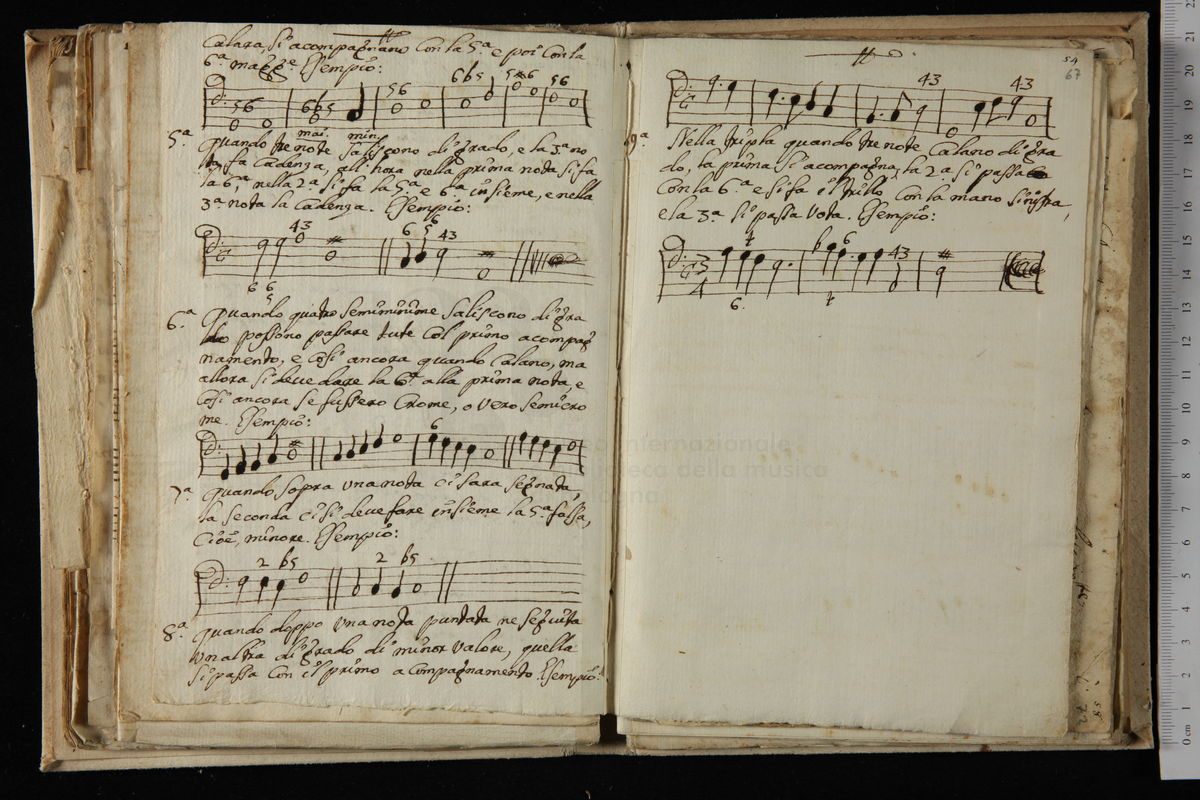 Calara, si acompagnano con la 5.ª e poi con la
6.ª magg.e Esempio:
56 6b5 56 6b5 5*6 56
mai. min.
5.ª Quando tre note saliscono di grado, e la 3.ª no
ta fa Cadenza, all'hora nella prima nota si fa
la 6.ª, nella 2.ª si fa la 5.ª e 6.ª insieme, e nella
3.ª nota la Cadenza. Esempio:
43 6 5 6 43
6 6
5
6.ª Quando quatro semiminime saliscono di gra
do possono passare tute col primo acompag
namento, e cosi ancora quando Calano, ma
allora si deve dare la 6.ª alla prima nota, e
cosi ancora se fussero Crome, o vero semicro
me. Esempio:
6
7.ª Quando sopra una nota ci sara segnata,
la seconda ci si deve fare insieme la 5.ª falsa,
cioè, minore. Esempio:
2 b5 2 b5
8.ª Quando doppo una nota puntata ne seguita
un altra di grado di minor valore, quella
si passa con il primo acompagnamento. Esempio:
54
67
43 43
9.ª Nella tripla quando tre note Calano di gra
do, la prima si acompagna, la 2.ª si passa
con la 6.ª e si fa il trillo con la mano sinistra,
e la 3.ª si passa vota. Esempio:
3
4
t b 6 43
6. t
Museo internazionale
e biblioteca della musica
di Bologna